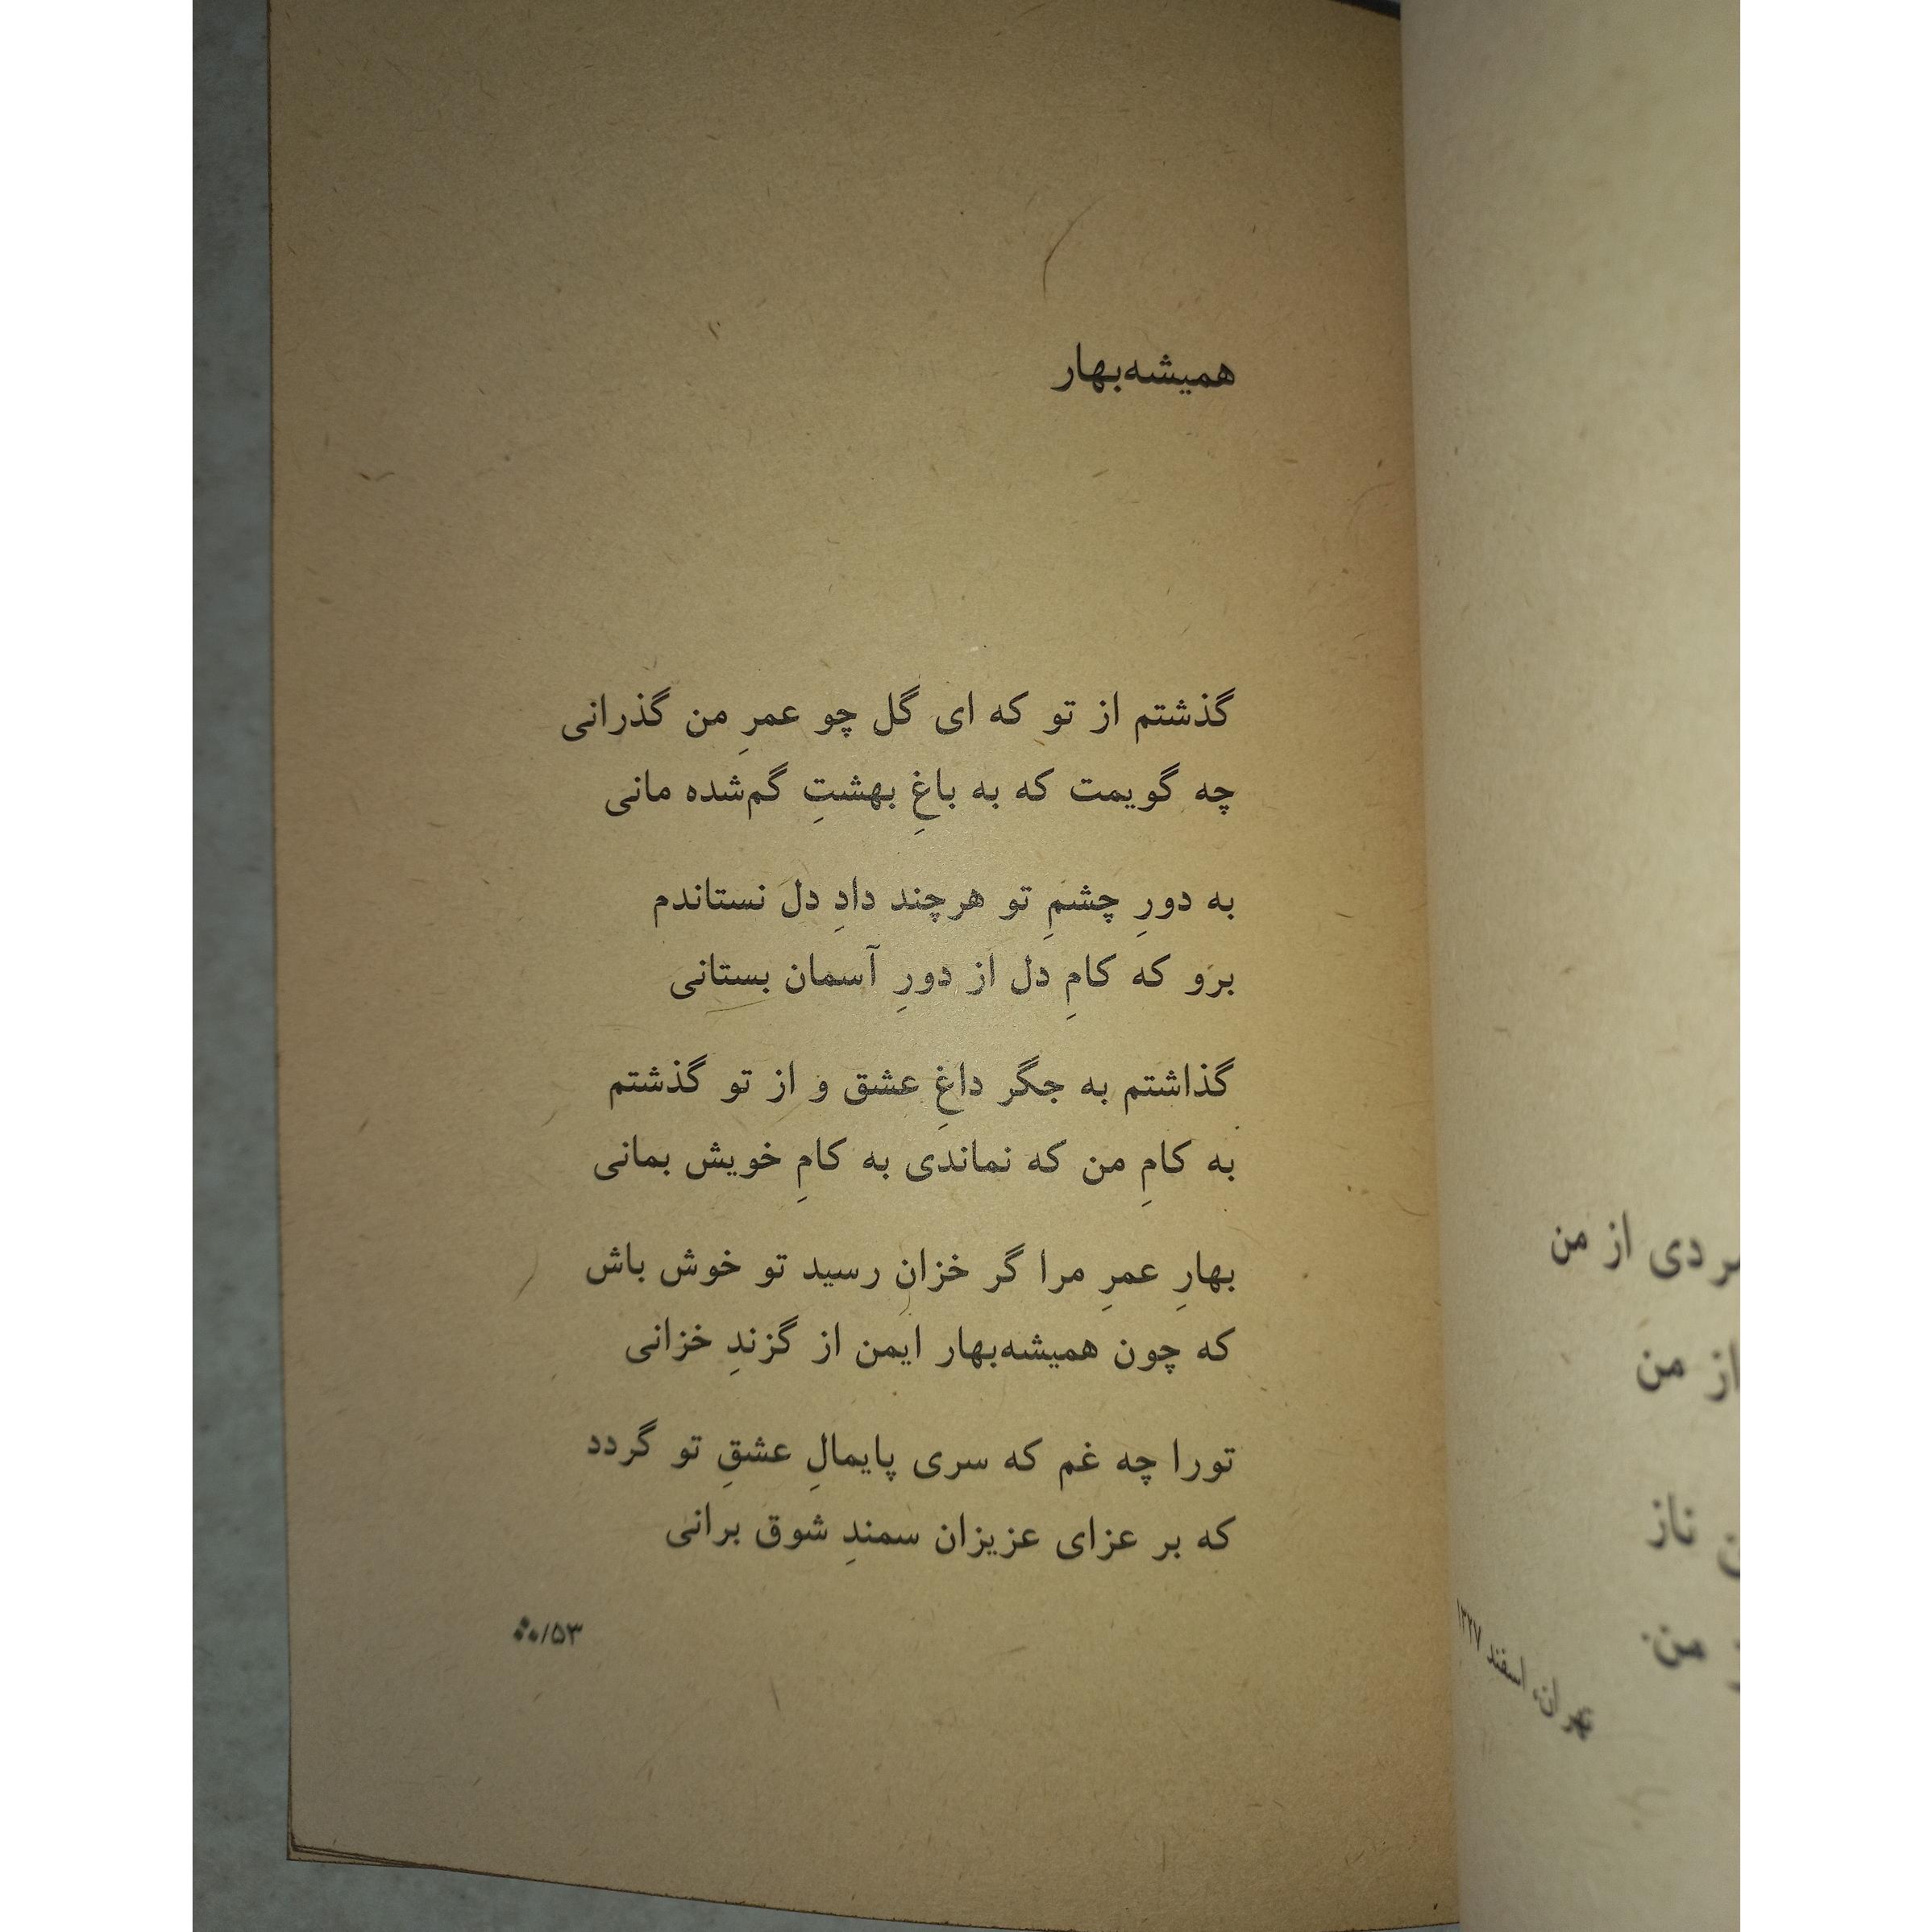 همیشه‌بهار
گذشتم از تو که ای گل چو عمرِ من گذرانی
چه گویمت که به باغِ بهشتِ گم‌شده مانی
به دورِ چشمِ تو هرچند دادِ دل نستاندم
برو که کامِ دل از دورِ آسمان بستانی
گذاشتم به جگر داغِ عشق و از تو گذشتم
به کامِ من که نماندی به کامِ خویش بمانی
بهارِ عمرِ مرا گر خزان رسید تو خوش باش
که چون همیشه‌بهار ایمن از گزندِ خزانی
تورا چه غم که سری پایمالِ عشقِ تو گردد
که بر عزای عزیزان سمندِ شوق برانی
۵۳/
دی از من
از من
ناز
من
تهران، اسفند ۱۳۲۷